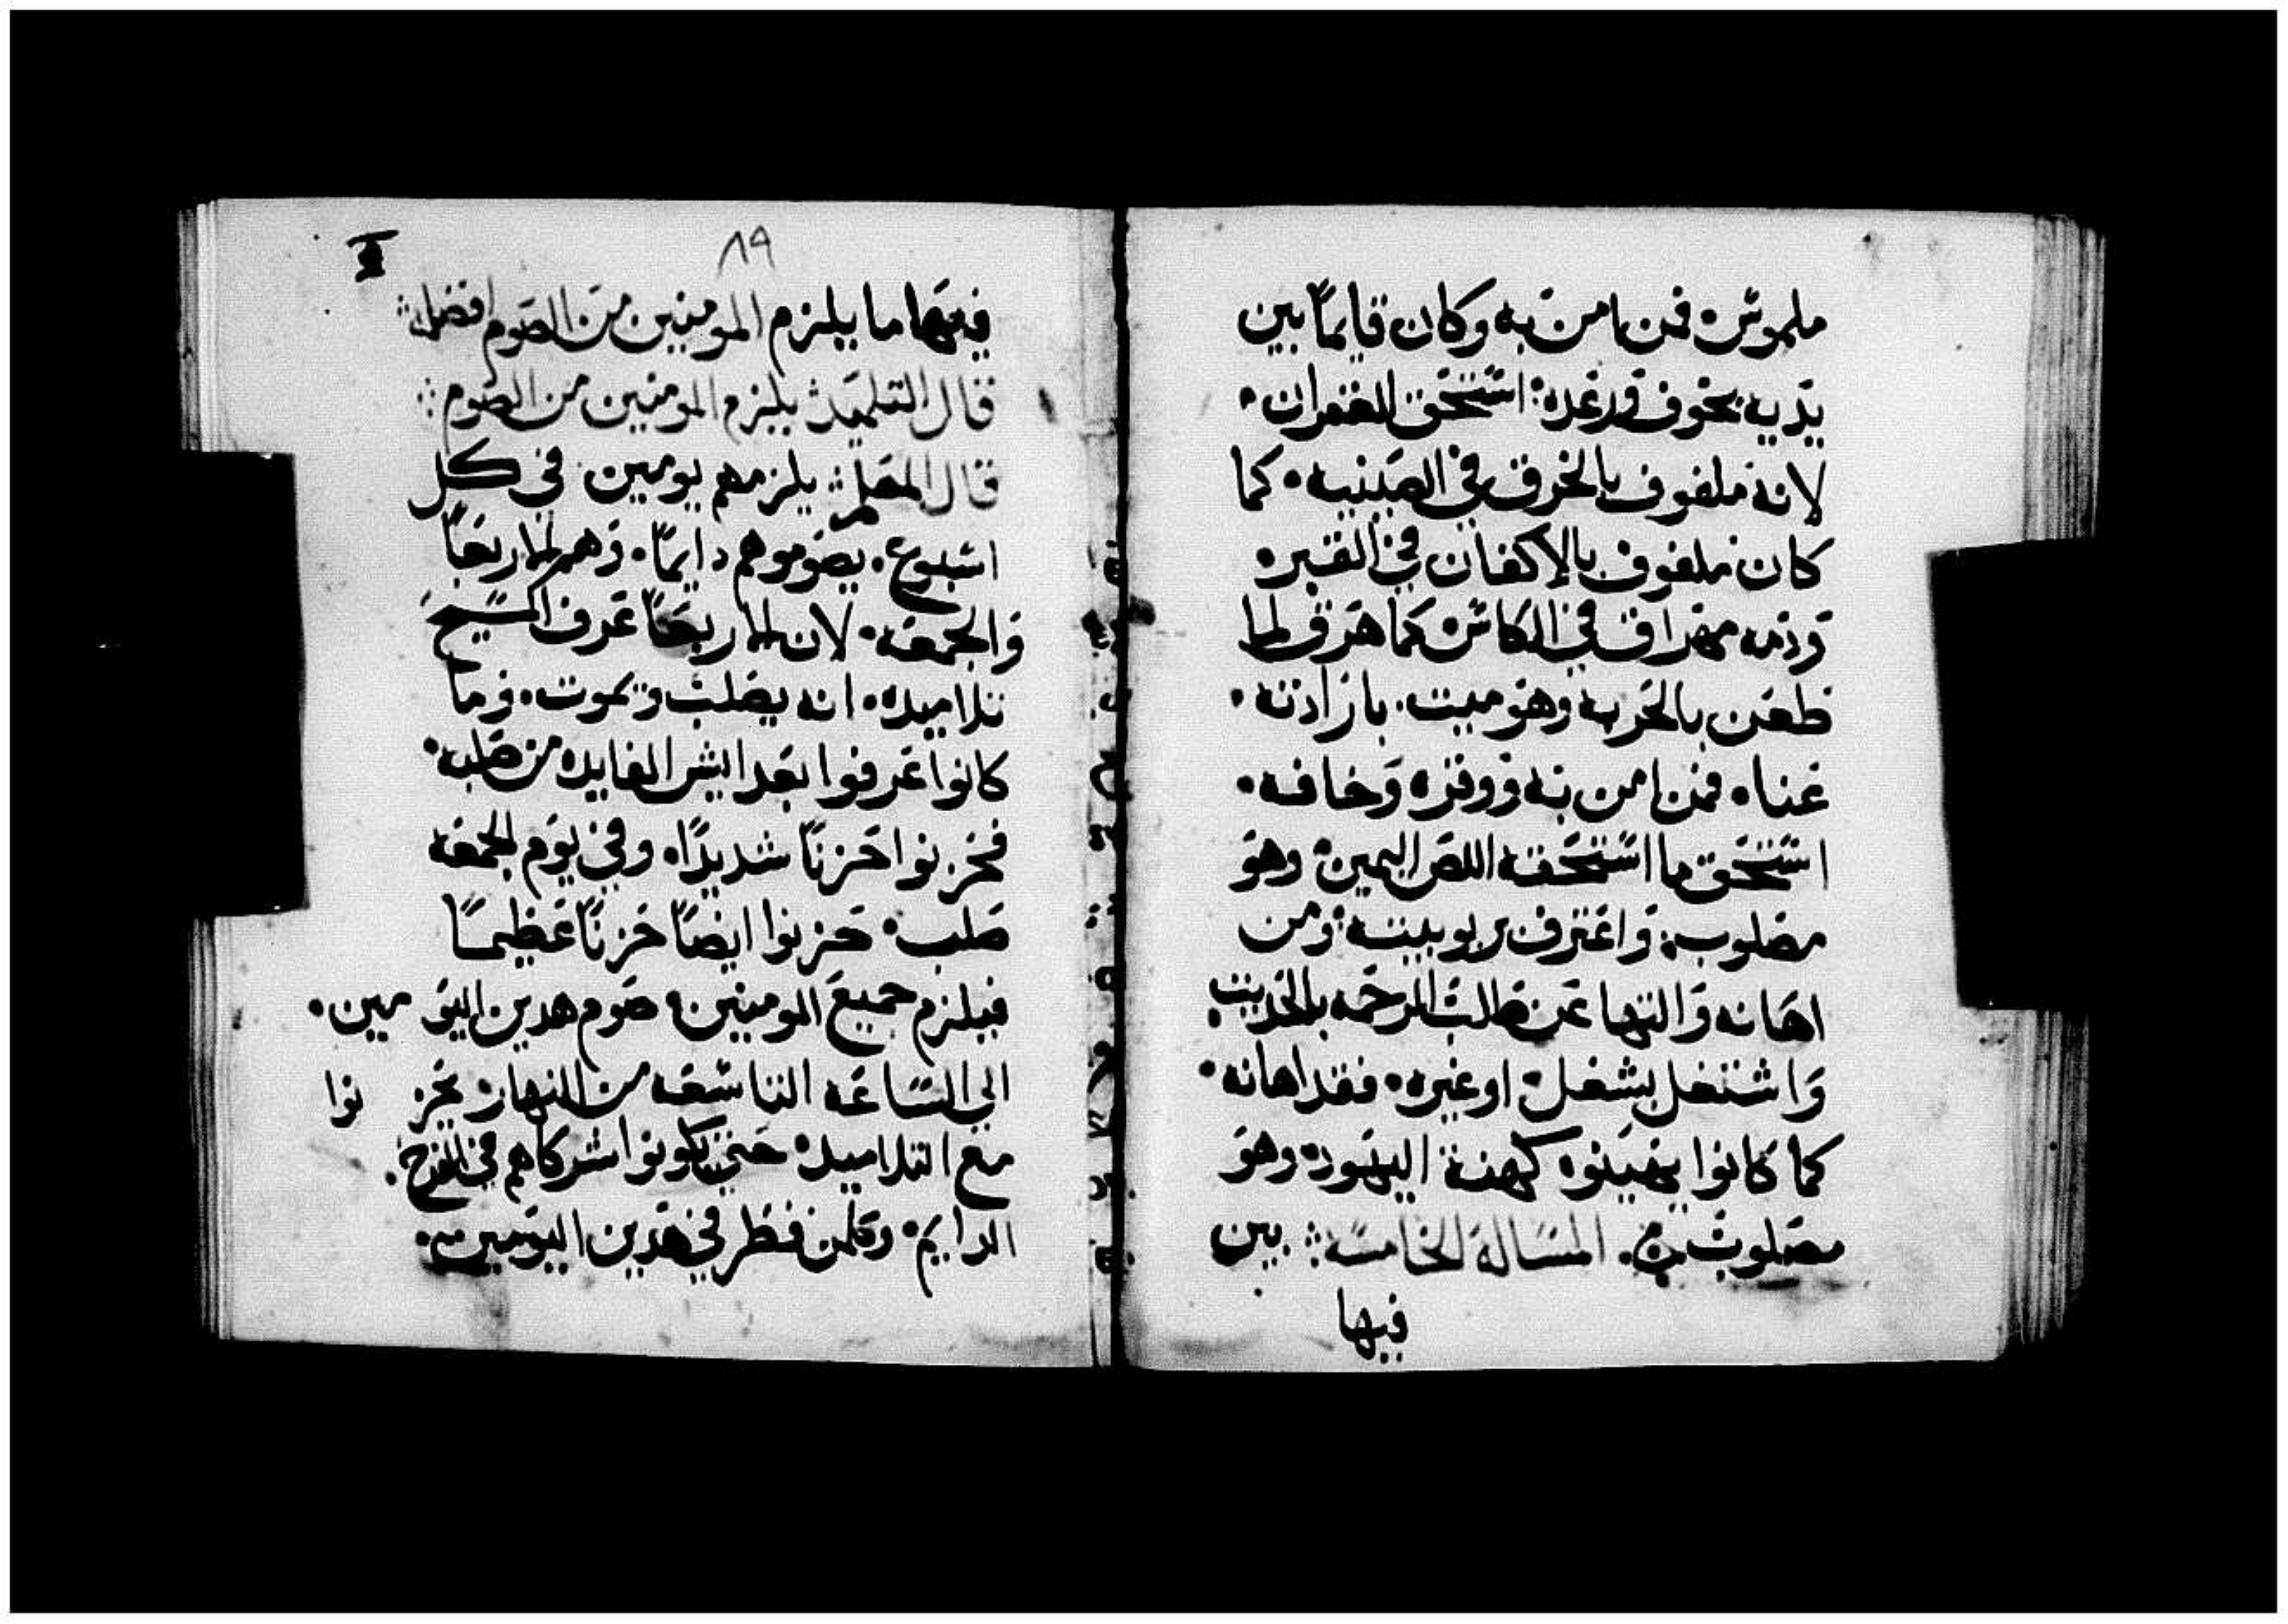 ملموس. فمن امن به وكان قايماً بين
يديه بخوف ورعده: استحق الغفران.
لانه ملفوف بالخرق في الصينيه. كما
كان ملفوف بالاكفان في القبر.
ودمه مهراق في الكاس. كما هرق لما
طعن بالحربه وهو ميت. بارادته.
عنا. فمن امن به ووقره وخافه.
استحق ما استحقه اللص اليمين. وهو
مصلوب: واعترف بربوبيته: ومن
اهانه والتها عن طالب الرحمه بالحديث
واشتغل بشغل. او غيره. فقد اهانه.
كما كانوا يهينوه كهنة اليهود. وهو
مصلوب. المسالة الخامسه: بين
فيها
٨٩
فيها ما يلزم المومنين من الصوم افضل:
قال التلميد: يلزم المومنين من الصوم:
قال المعلم: يلزمهم يومين في كل
اسبوع. يصوموهم دايماً. وهم الاربعا
والجمعه. لان الاربعا عرف المسيح
تلاميده. انه يصلب ويموت. وما
كانوا عرفوا بعد ايش الفايده من صلبه.
فحزنوا حزناً شديداً. وفي يوم الجمعه
صلب. حزنوا ايضاً حزناً عظيماً
فيلزم جميع المومنين. صوم هدين اليومين.
الي الساعه التاسعه من النهار. يحزنوا
مع التلاميد. حتي يكونوا شركاهم في الفرح.
الدايم. وكلمن فطر في هدين اليومين.